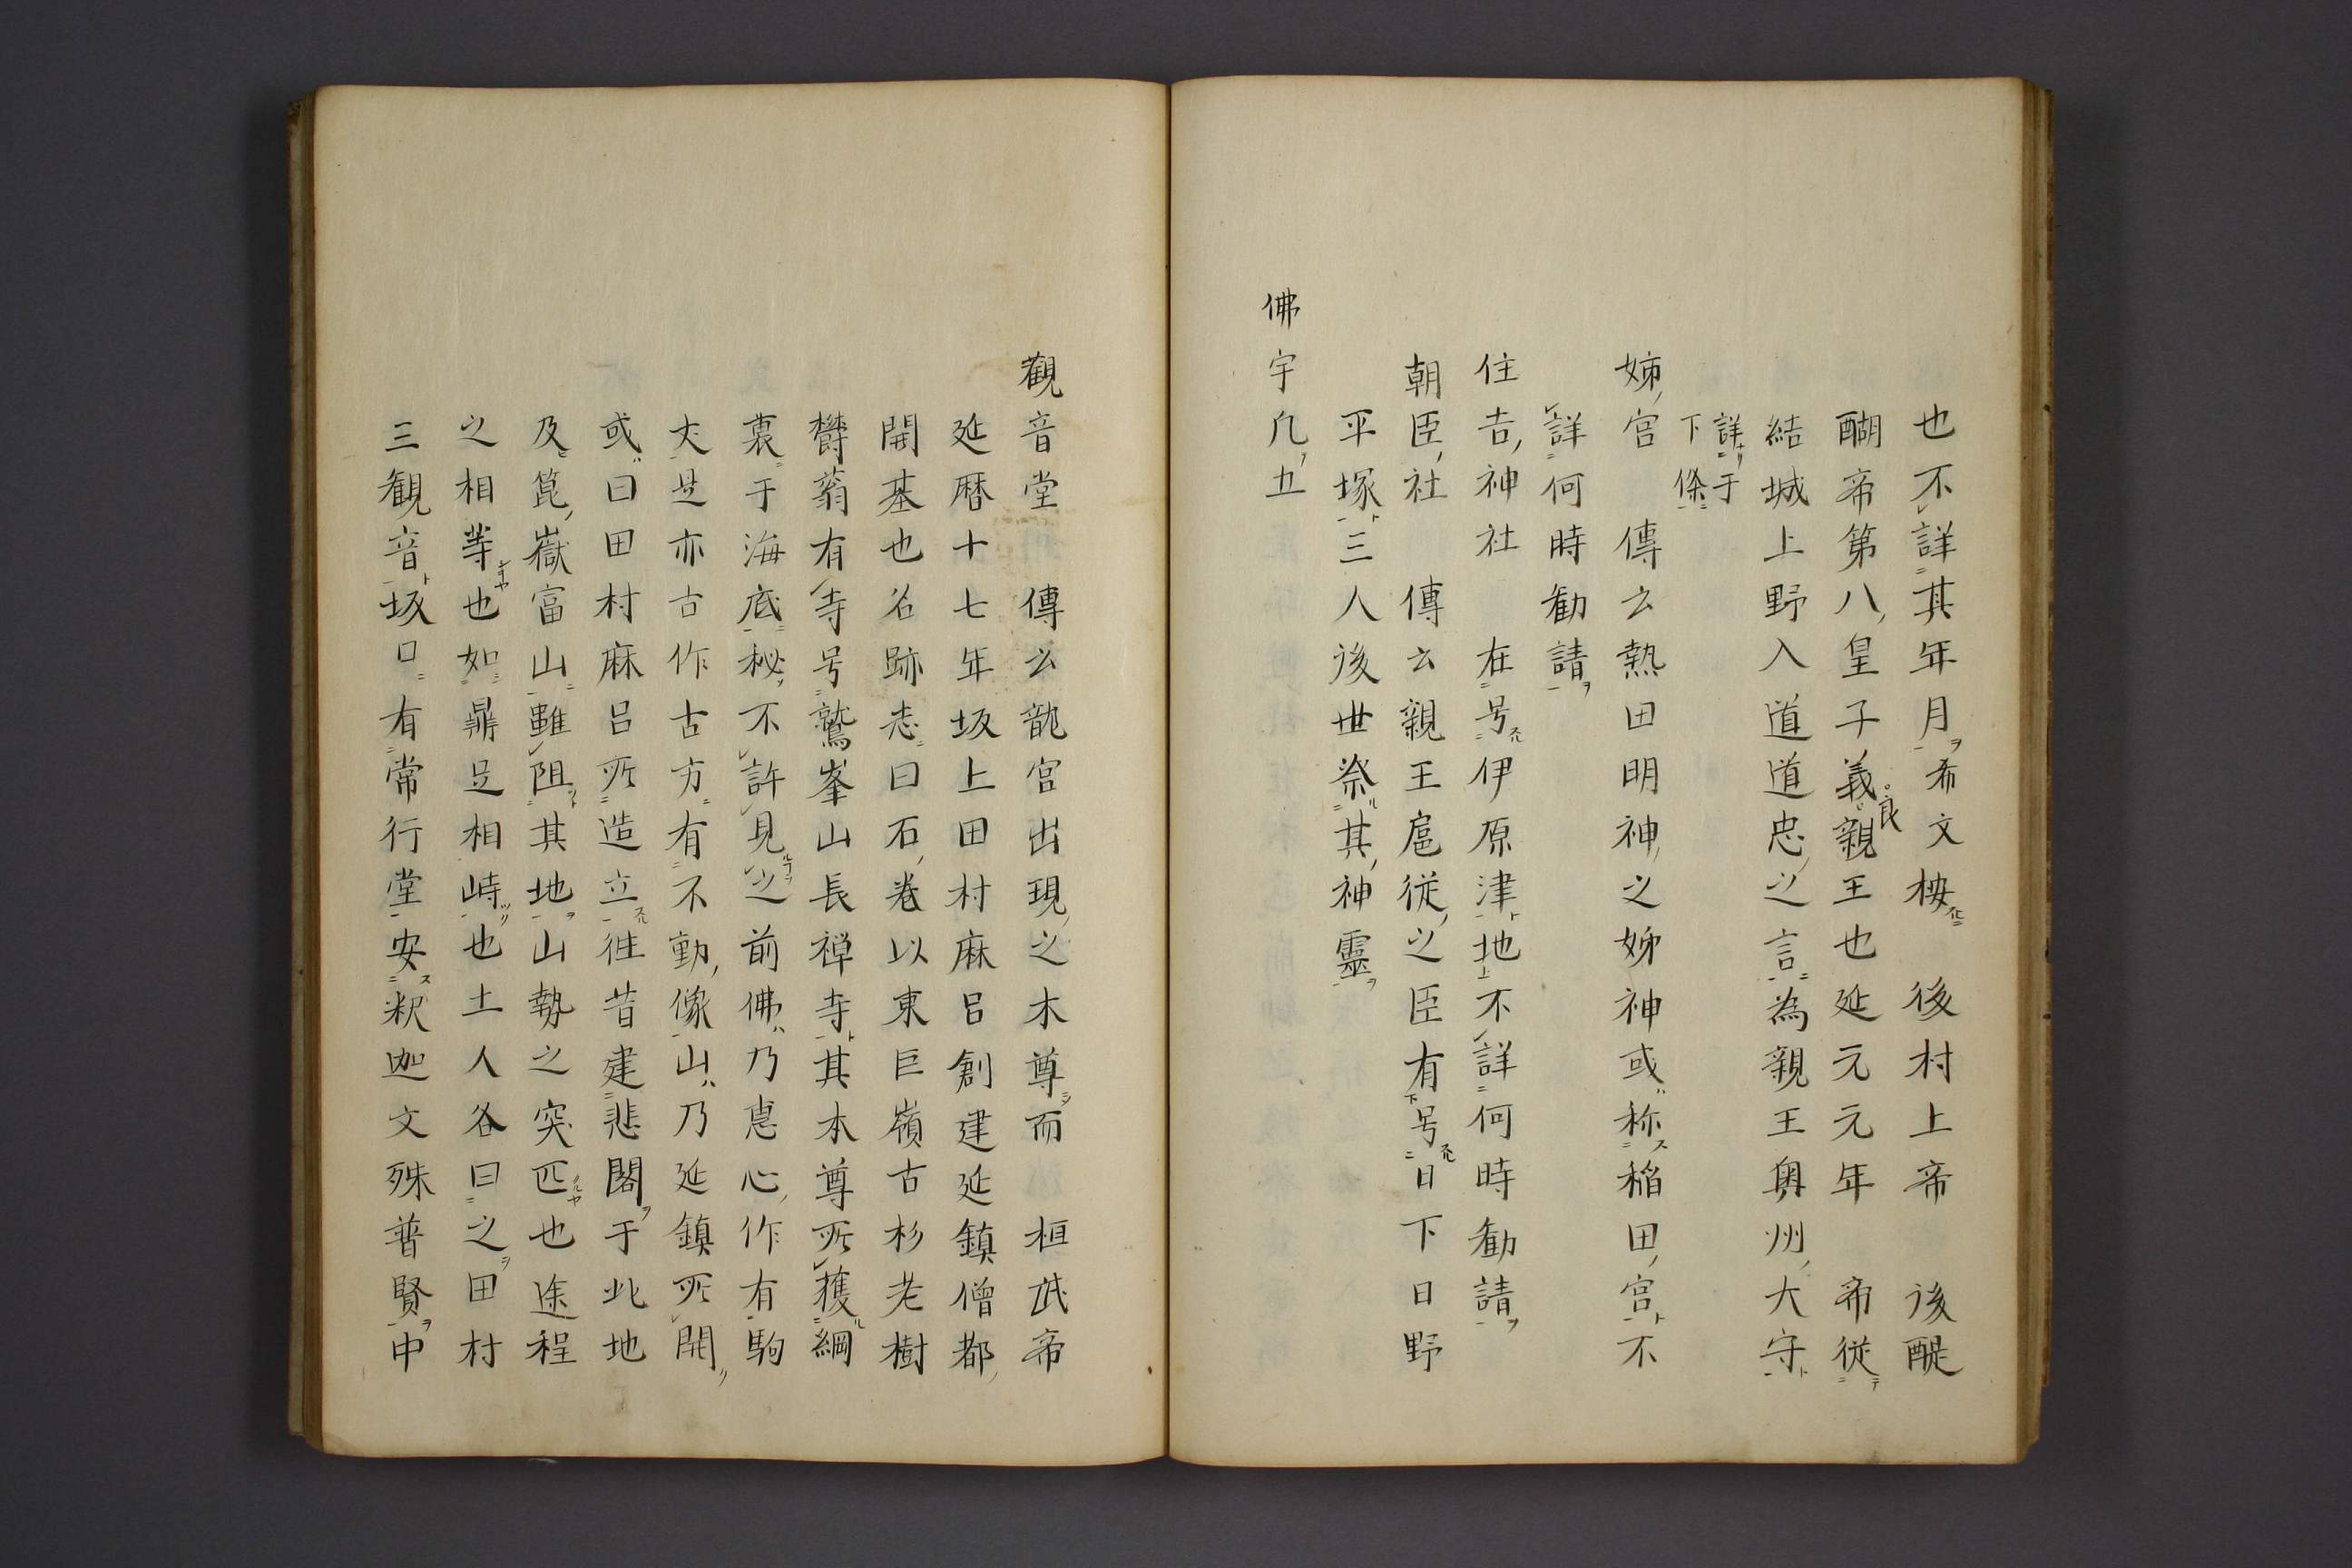 也不詳其年月希文桉　後村上帝　後醍
醐帝第八皇子義良親王也延元元年　帝従
結城上野入道道忠之言為親王奥州大守
詳于
下條
姊宮　傳云熱田明神之姊神或称稲田宮不
詳何時勧請
住吉神社　在号伊原津地不詳何時勧請
朝臣社　傳云親王扈従之臣有号日下日野
平塚三人後世祭其神靈
佛宇凡五
觀音堂　傳云龍宮出現之木尊而　桓武帝
延暦十七年坂上田村麻呂創建延鎮僧都
開基也名跡志曰石巻以東巨嶺古杉老樹
欝蓊有寺号鷲峯山長禅寺其本尊所獲綱
裏于海底秘不許見之前佛乃恵心作有駒
犬是亦古作古方有不動像山乃延鎮所開
或曰田村麻呂所造立往昔建悲閣于此地
及箆嶽富山雖阻其地山勢之突匹也途程
之相等也如鼎足相峙也土人各曰之田村
三観音坂口有常行堂安釈迦文殊普賢中